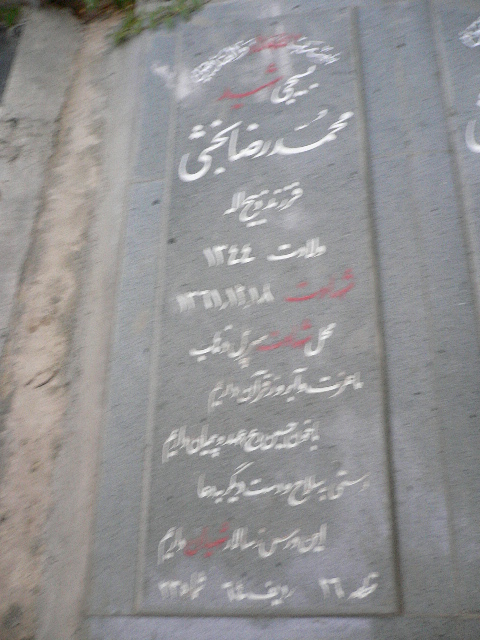 بسیجی شهید
محمدرضا بخشی
فرزند ذبیح اله
ولادت ۱۳۴۴
شهادت ۱۳۶۱٫۱۲٫۱۸
محل شهادت سرپل ذهاب
ما عزت و آبرو ز قرآن داریم
با خون حسین (ع) عهد و پیمان داریم
دستی به سلاح و دست دیگر به دعا
این درس ز سالار شهیدان داریم
قطعه ۲۶ ردیف ۶۴ شماره ۲۲